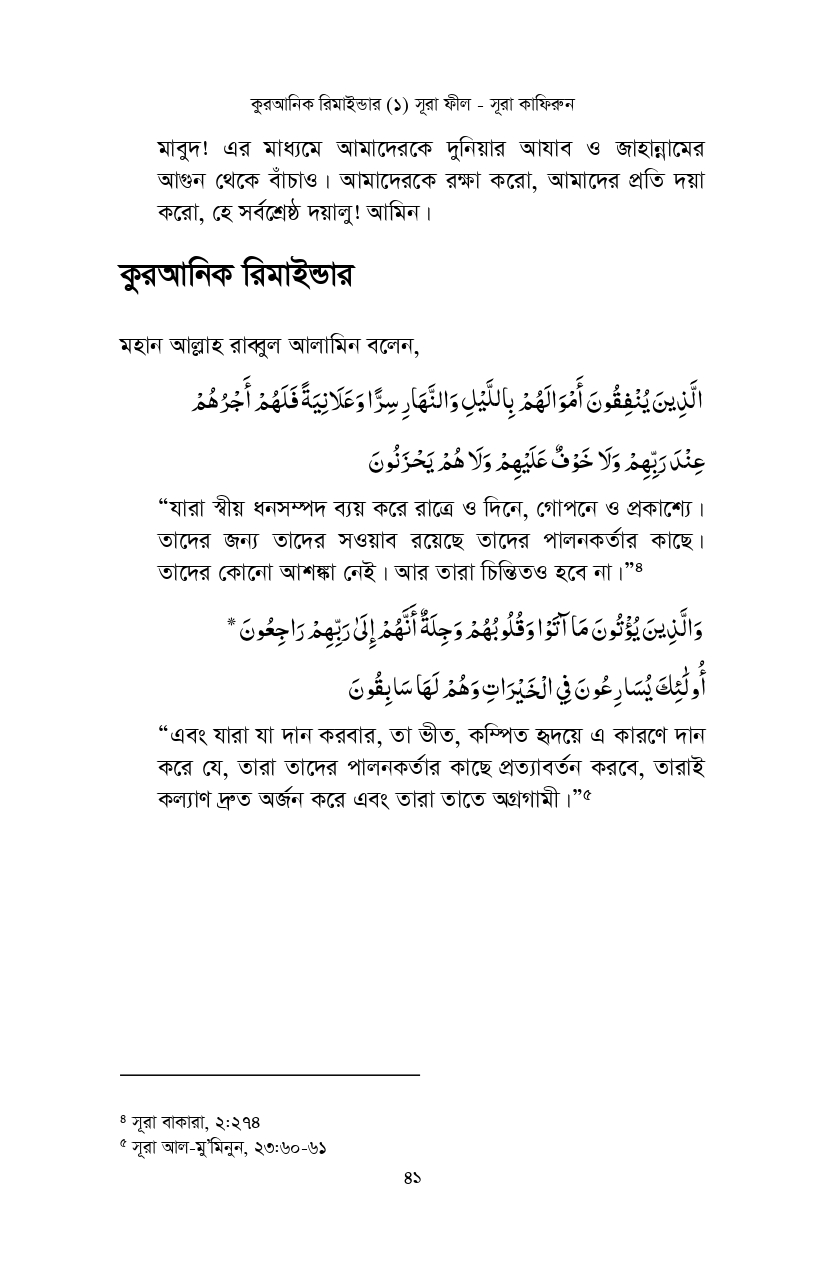 কুরআনিক রিমাইন্ডার (১) সূরা ফীল - সূরা কাফিরুন
মাবুদ! এর মাধ্যমে আমাদেরকে দুনিয়ার আযাব ও জাহান্নামের
আগুন থেকে বাঁচাও। আমাদেরকে রক্ষা করো, আমাদের প্রতি দয়া
করো, হে সর্বশ্রেষ্ঠ দয়ালু! আমিন।
কুরআনিক রিমাইন্ডার
মহান আল্লাহ রাব্বুল আলামিন বলেন,
الَّذِينَ يُنْفِقُونَ أَمْوَالَهُمْ بِاللَّيْلِ وَالنَّهَارِ سِرًّا وَعَلَانِيَةً فَلَهُمْ أَجْرُهُمْ
عِنْدَ رَبِّهِمْ وَلَا خَوْفٌ عَلَيْهِمْ وَلَا هُمْ يَحْزَنُونَ
“যারা স্বীয় ধনসম্পদ ব্যয় করে রাত্রে ও দিনে, গোপনে ও প্রকাশ্যে।
তাদের জন্য তাদের সওয়াব রয়েছে তাদের পালনকর্তার কাছে।
তাদের কোনো আশঙ্কা নেই। আর তারা চিন্তিতও হবে না।”৪
وَالَّذِينَ يُؤْتُونَ مَا آتَوْا وَقُلُوبُهُمْ وَجِلَةٌ أَنَّهُمْ إِلَىٰ رَبِّهِمْ رَاجِعُونَ *
أُولَٰئِكَ يُسَارِعُونَ فِي الْخَيْرَاتِ وَهُمْ لَهَا سَابِقُونَ
“এবং যারা যা দান করবার, তা ভীত, কম্পিত হৃদয়ে এ কারণে দান
করে যে, তারা তাদের পালনকর্তার কাছে প্রত্যাবর্তন করবে, তারাই
কল্যাণ দ্রুত অর্জন করে এবং তারা তাতে অগ্রগামী।”৫
৪ সূরা বাকারা, ২:২৭৪
৫ সূরা আল-মু’মিনুন, ২৩:৬০-৬১
৪১